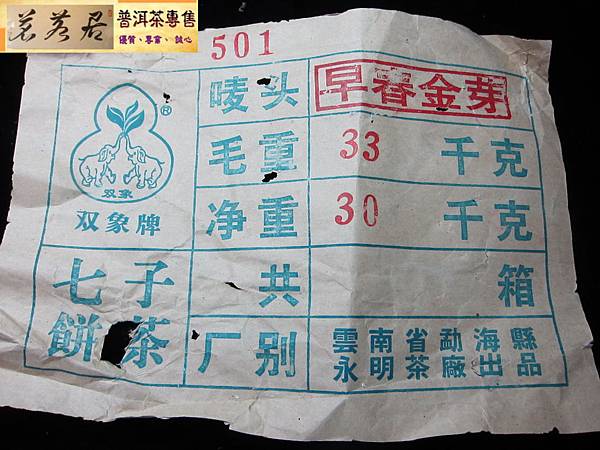 茗茗居
普洱茶專售
優質、專業、誠心
501
唛头 早春金芽
®
双象
双象牌
毛重 33 千克
净重 30 千克
七子
餅茶
共 箱
厂别
雲南省勐海縣
永明茶廠出品